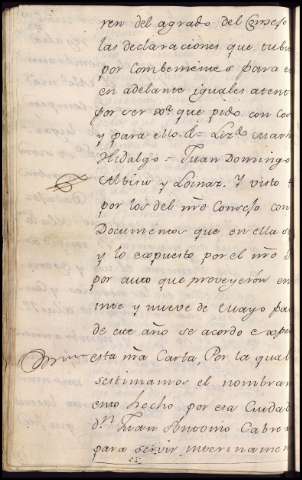 ren del agrado del Consejo
las declaraciones que tubie
por combeniente para e
en adelante iguales atent
por ser
que pido con
y para ello
Hidalgo = Juan Domingo
Albisu y Loinaz. Y visto
por los del nro Consejo con
Documentos que en ella
y lo expuesto por el nro
por auto que proveyerón en
inte y nueve de Mayo pa
de este año se acordo e
esta nra Carta, Por la qual
estimamos el nombram
ento hecho por esa Ciudad
dn. Juan Antonio Cabre
para servir interinamen